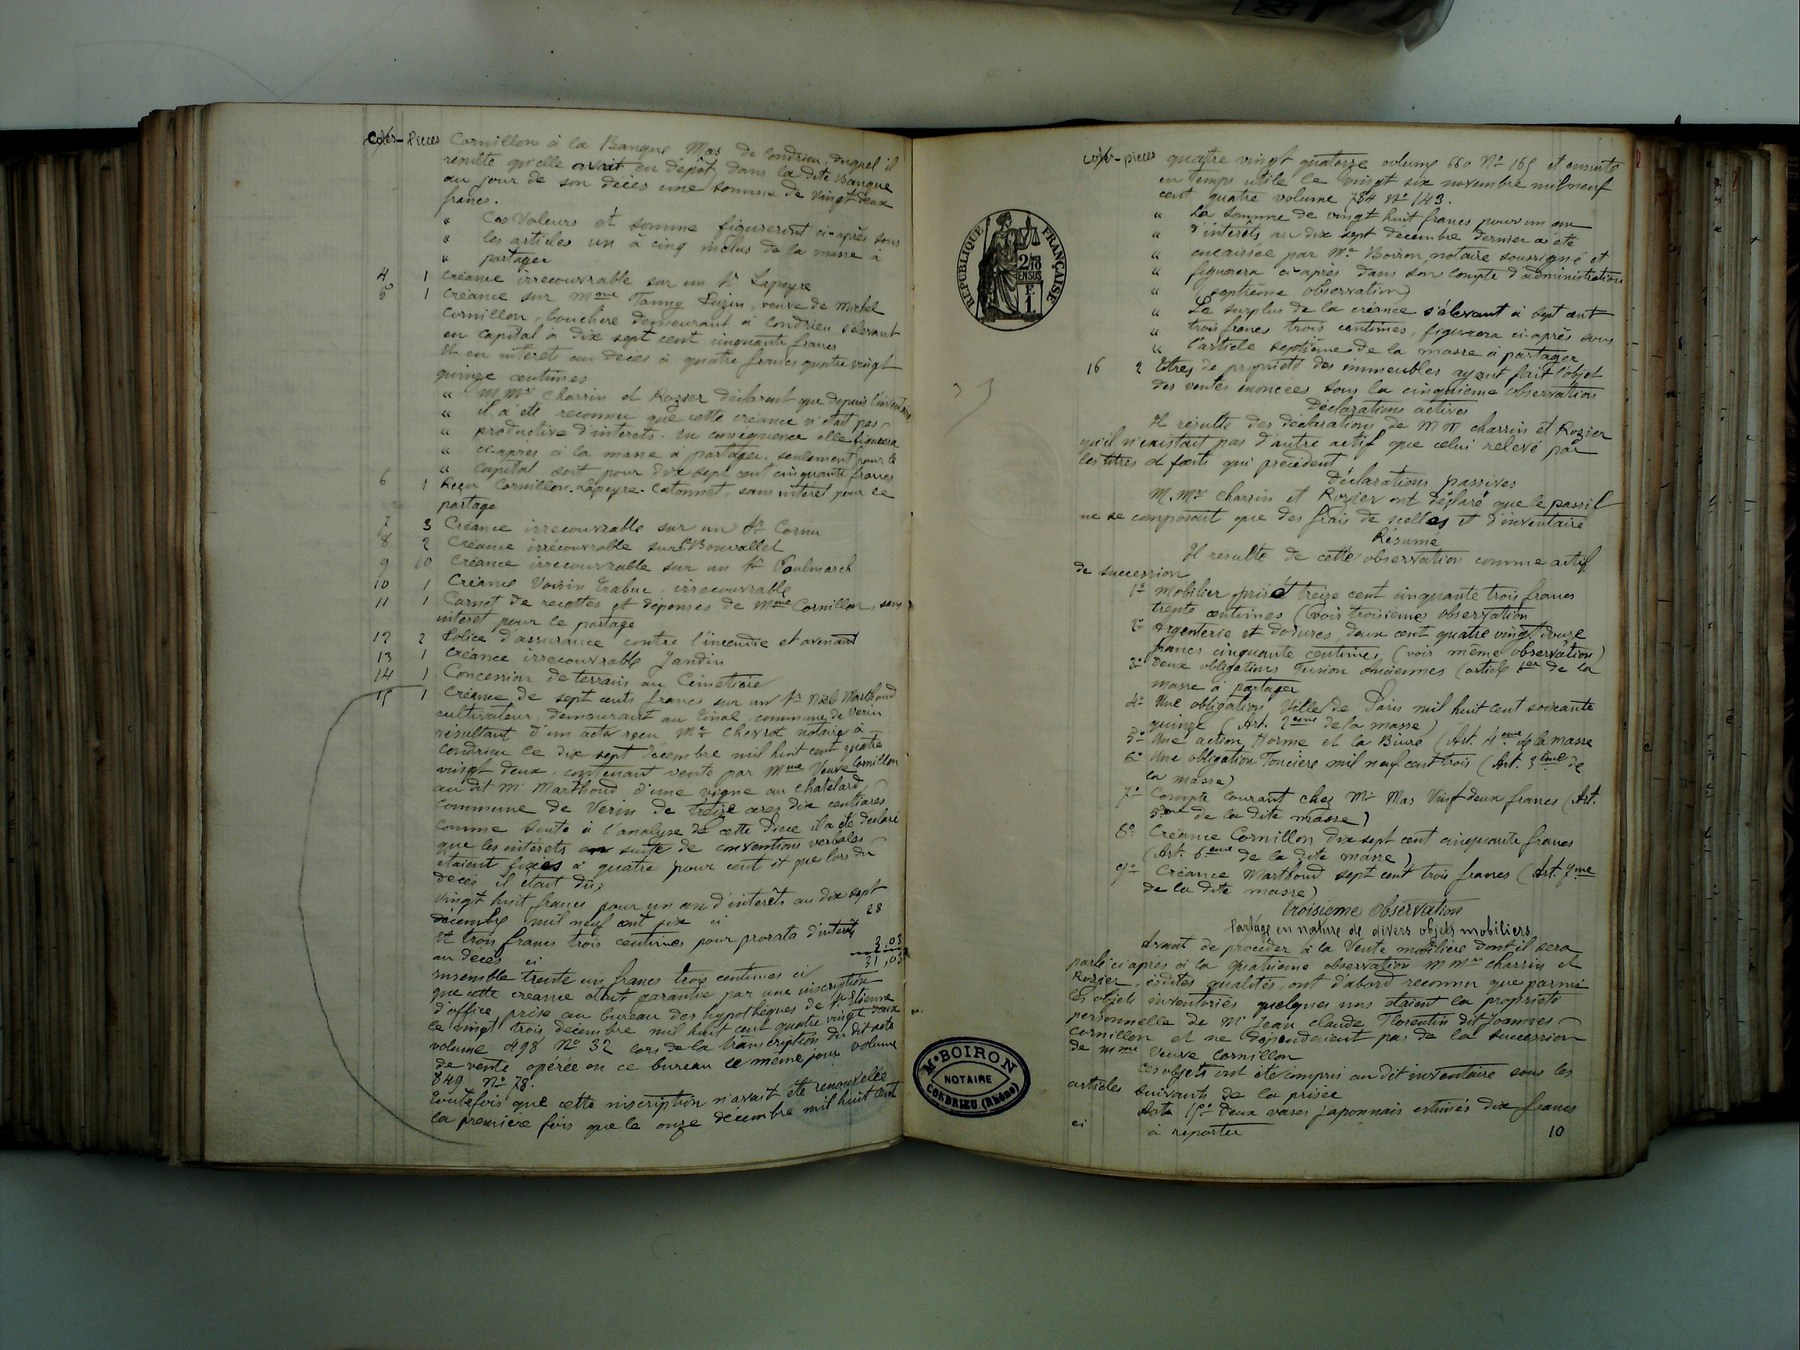 Cotes - Pièces Cornillon à la Banque Mas de Condrieu, duquel il
résulte qu'elle avait en dépôt dans la dite Banque
au jour de son décès une somme de vingt deux
francs.
" Ces valeurs et somme figureront ci-après sous
" les articles un à cinq inclus de la masse à
" partager
4 1 Créance irrecouvrable sur un Sr Lapeyre
5 1 Créance sur Mme Fanny Luzin, veuve de Michel
Cornillon, bouchère demeurant à Condrieu s'élevant
en capital à dix sept cent cinquante francs
Et en intérêt au décès à quatre francs quatre vingt
quinze centimes
" M.Mrs Charrin et Rozier déclarent que depuis l'inventaire
" il a été reconnu que cette créance n'était pas
" productive d'intérêts. En conséquence elle figurera
" ci-après à la masse à partager, seulement pour le
" capital soit pour dix sept cent cinquante francs
6 1 Reçu Cornillon-Lapeyre-Catonnet, sans intérêt pour le
partage
7 3 Créance irrecouvrable sur un Sr Cornu
8 2 Créance irrécouvrable sur Sr Bonvallet
9 10 Créance irrecouvrable sur un Sr
10 1 Créance Voisin Trabuc, irrecouvrable
11 1 Carnet de recettes et dépenses de Mme Cornillon, sans
intérêt pour le partage
12 2 Police d'assurance contre l'incendie et avenant
13 1 Créance irrecouvrable Jandin
14 1 Concession de terrain au Cimetière
15 1 Créance de sept cents francs sur un Sr Noël Marthoud
cultivateur, demeurant au Pinal, commune de Vérin
résultant d'un acte reçu Me Chevrot notaire à
Condrieu le dix sept décembre mil huit cent quatre
vingt deux, contenant vente par Mme Veuve Cornillon
au dit Mr Marthoud d'une vigne au Chatelard,
commune de Vérin de treize ares dix centiares
Comme suite à l'analyse de cette pièce il a été déclaré
que les intérêts en suite de conventions verbales
étaient fixés à quatre pour cent et que lors du
décès il était dû:
vingt huit francs pour un an d'intérêts au dix sept
décembre mil neuf cent six ci 28
Et trois francs trois centimes pour prorata d'intérêt
au décès ci 3,03
31,03
Ensemble trente un francs trois centimes ci
que cette créance était garantie par une inscription
d'office prise au bureau des hypothèques de St Etienne
le vingt trois décembre mil huit cent quatre vingt deux
volume 498 No 32 lors de la transcription du dit acte
de vente opérée en ce bureau le même jour volume
849 No 78.
Toutefois que cette inscription n'avait été renouvelée
la première fois que le onze décembre mil huit cent
RÉPUBLIQUE FRANÇAISE
M e BOIRON
NOTAIRE
CONDRIEU (Rhône)
Cotes - pièces quatre vingt quatorze volume 660 No 165 et ensuite
en temps utile le vingt six novembre mil neuf
cent quatre volume 784 No 143.
" La somme de vingt huit francs pour un an
" d'intérêts au dix sept décembre dernier a été
" encaissée par Me Boiron, notaire soussigné et
" figurera ci-après dans son compte d'administration
" (septième observation)
" Le surplus de la créance s'élevant à sept cent
" trois francs trois centimes, figurera ci-après sous
" l'article septième de la masse à partager
16 2 Titres de propriété des immeubles ayant fait l'objet
des ventes énoncées sous la cinquième observation
Déclarations actives
Il résulte des déclarations de M.M. Charrin et Rozier
qu'il n'existait pas d'autre actif que celui relevé par
les titres et faits qui précèdent
Déclarations passives
M.Mrs Charrin et Rozier ont déclaré que le passif
ne se composait que des frais de scellés et d'inventaire
Résumé
Il résulte de cette observation comme actif
de succession
1o Mobilier prisé treize cent cinquante trois francs
trente centimes (voir troisième observation
2o Argenterie et dorures, deux cent quatre vingt douze
francs cinquante centimes (voir même observation)
3o Deux obligations Fusion Anciennes (article 1er de la
masse à partager
4o Une obligation Ville de Paris mil huit cent soixante
quinze (Art. 2ème de la masse)
5o Une action Horme et la Buire (Art. 4ème de la masse
6o Une obligation Foncière mil neuf cent trois (Art. 3ème de
la masse)
7o Compte courant chez Mr Mas vingt deux francs (Art.
5ème de la dite masse)
8o Créance Cornillon dix sept cent cinquante francs
(Art. 6ème de la dite masse)
9o Créance Marthoud sept cent trois francs (Art. 7me
de la dite masse)
Troisième Observation
Partage en nature de divers objets mobiliers
Avant de procéder à la Vente mobilière dont il sera
parlé ci-après à la quatrième observation M.Mrs Charrin et
Rozier, esdites qualités, ont d'abord reconnu que parmi
les objets inventoriés, quelques uns étaient la propriété
personnelle de Mr Jean Claude Florentin dit Joannès
Cornillon et ne dépendaient pas de la succession
de Mme Veuve Cornillon
Ces objets ont été compris au dit inventaire sous les
articles suivants de la prisée
Arte 15o deux vases japonnais estimés dix francs
ci à reporter 10